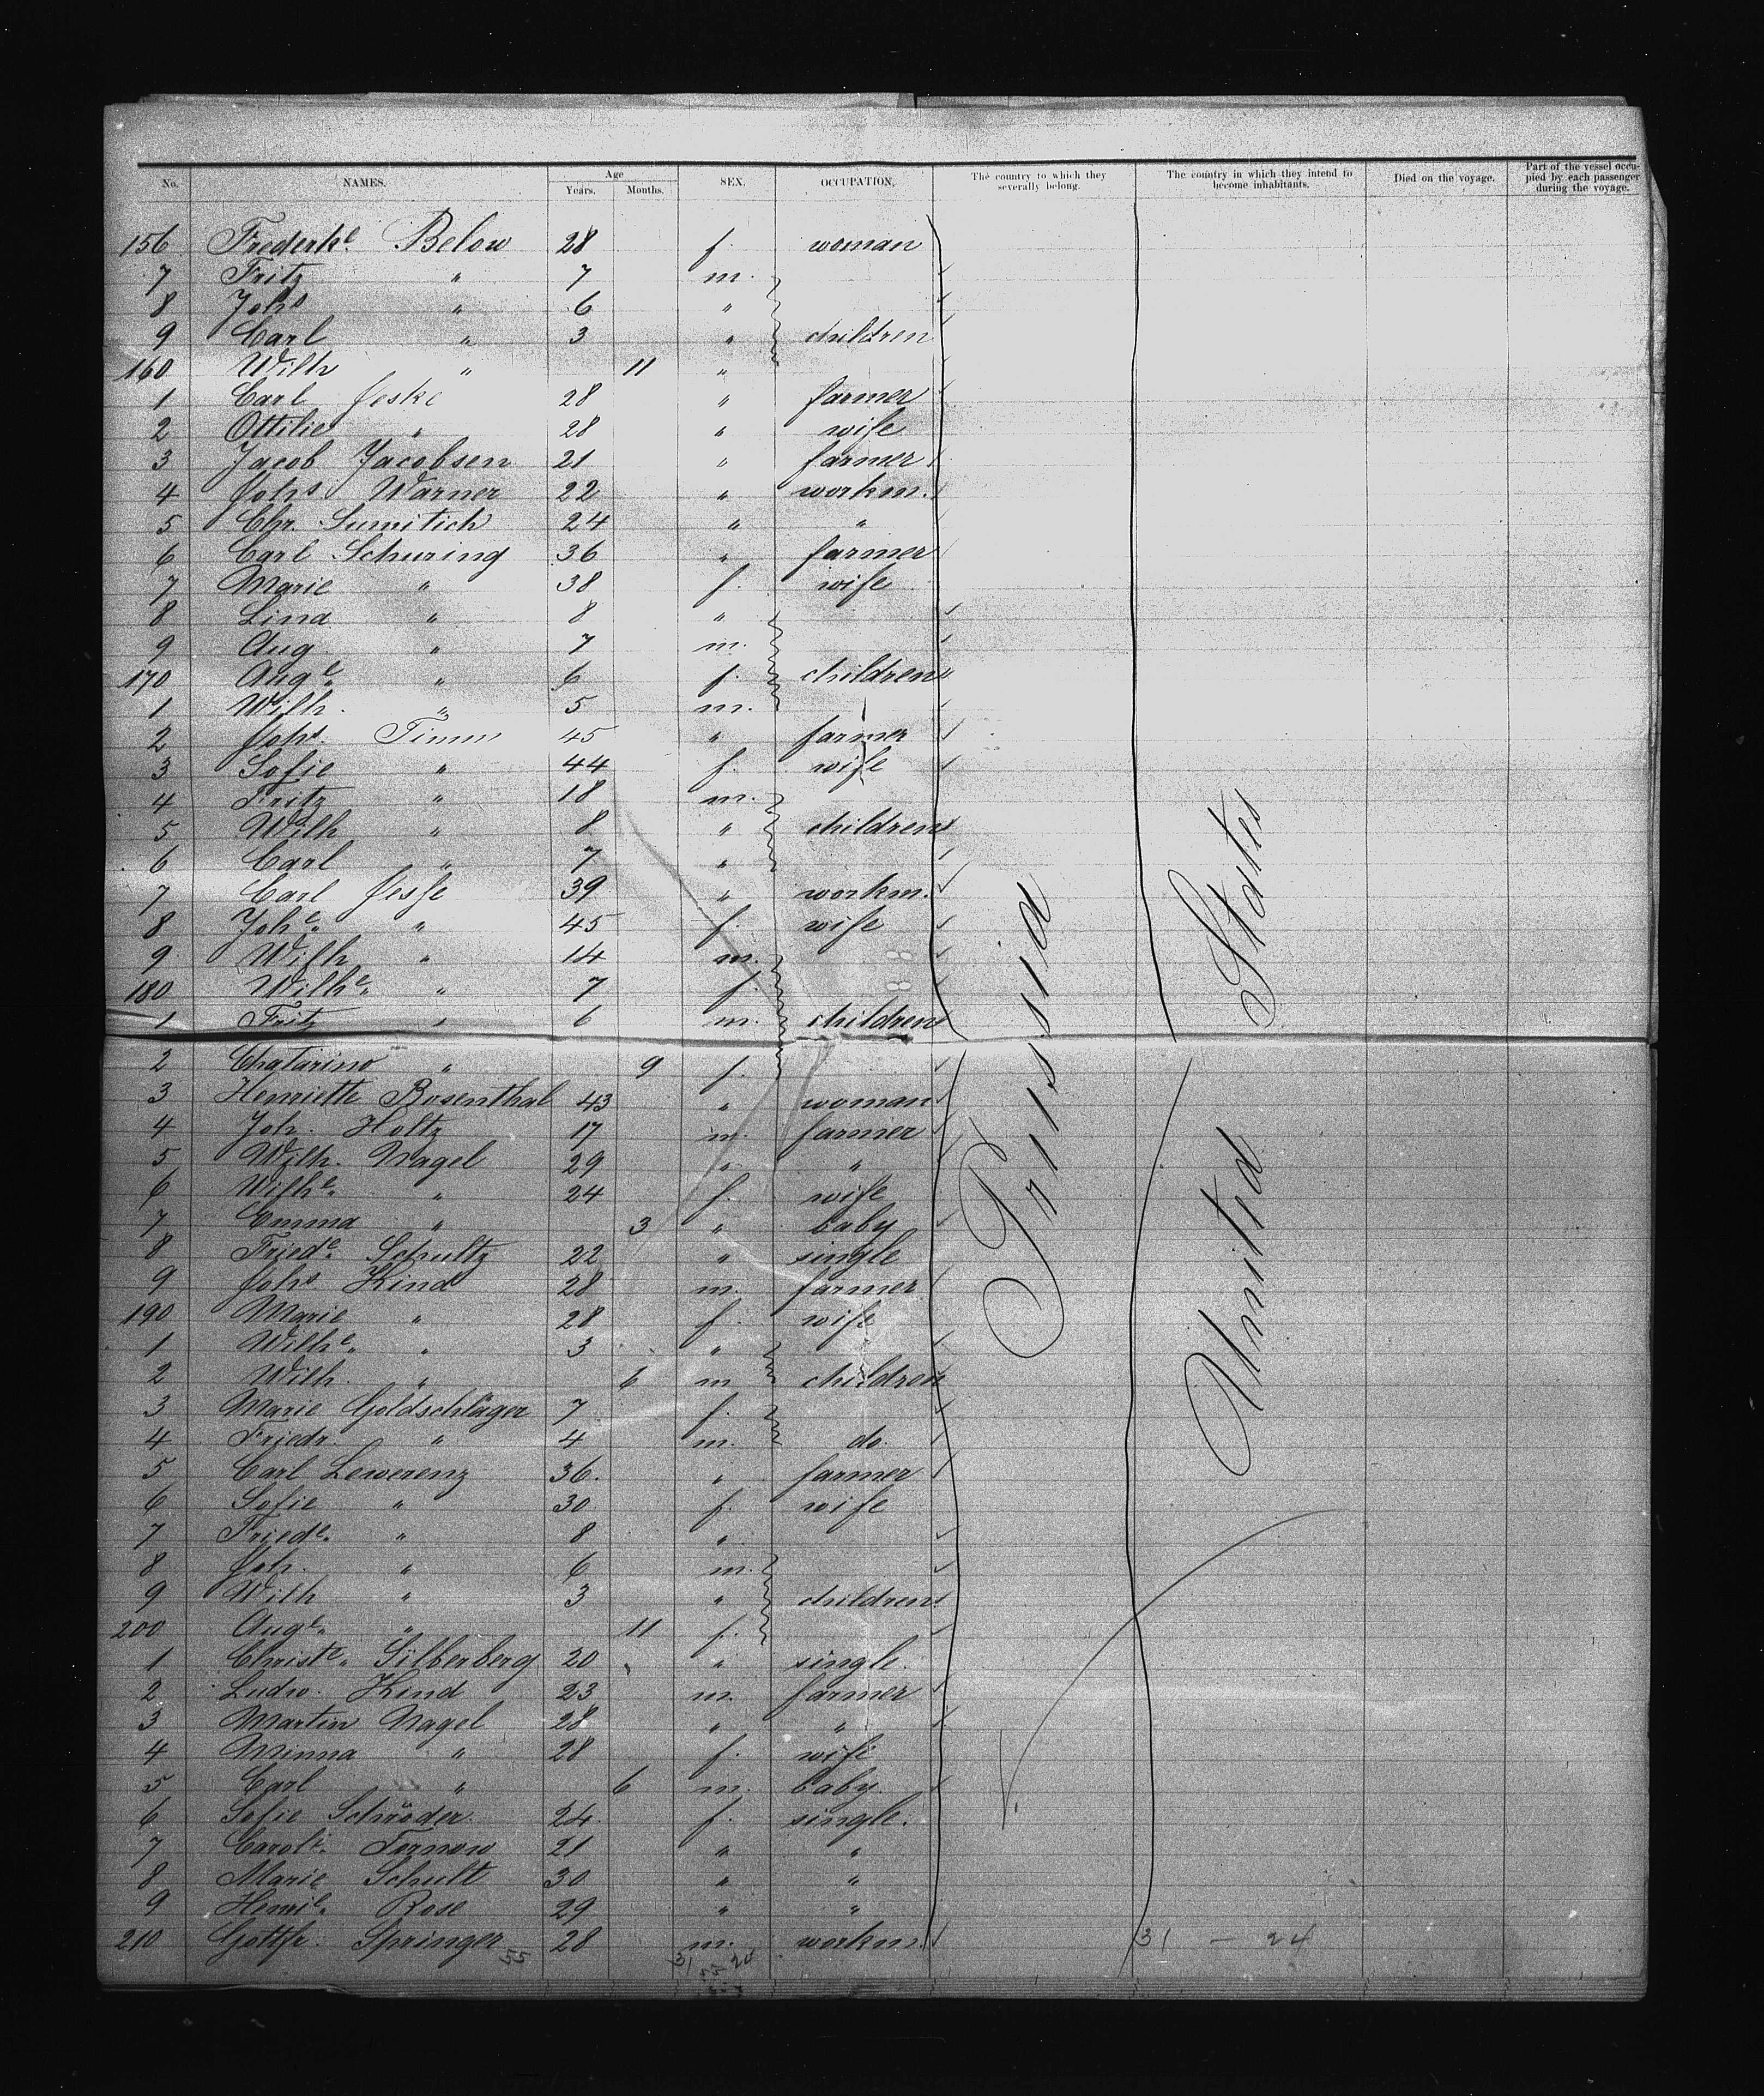 No. NAMES. Age Years. Months. SEX. OCCUPATION. The country to which they severally belong. The country in which they intend to become inhabitants. Died on the voyage. Part of the vessel occupied by each passenger during the voyage.
156 Frederke Below 28 f. woman
7 Fritz " 7 m.
8 Johs " 6 "
9 Carl " 3 " children
160 Wilh " 11 "
1 Carl Jeske 28 " farmer
2 Ottilie " 28 " wife
3 Jacob Jacobsen 21 " farmer
4 Johs Warner 22 " workm.
5 Chr. Sumitich 24 " "
6 Carl Schuring 36 " farmer
7 Marie " 38 f. wife
8 Lina " 8 "
9 Aug " 7 m.
170 Auge " 6 f. children
1 Wilh. " 5 m.
2 Johs. Timm 45 " farmer
3 Sofie " 44 f. wife
4 Fritz " 18 m.
5 Wilh " 8 " children
6 Carl " 7 "
7 Carl Jesse 39 " workm.
8 Johe " 45 f. wife
9 Wilh " 14 m.
180 Wilhe " 7 f.
1 Fritz " 6 m. children
2 Chatarina " 9 f.
3 Henriette Rosenthal 43 " woman
4 Joh. Holtz 17 m. farmer
5 Wilh. Nagel 29 " "
6 Wilhe " 24 f. wife
7 Emma " 3 " baby
8 Friede Schultz 22 " single
9 Johs Kind 28 m. farmer
190 Marie " 28 f. wife
1 Wilhe " 3 "
2 Wilh. " 6 m children
3 Marie Goldschläger 7 f.
4 Friedr. " 4 m. do.
5 Carl Lewerenz 36. " farmer
6 Sofie " 30 f. wife
7 Friede " 8 "
8 Joh. " 6 m.
9 Wilh " 3 " children
200 Auge " 11 f.
1 Christe Silberberg 20 " single.
2 Ludw. Kind 23 m. farmer
3 Martin Nagel 28 " "
4 Minna " 28 f. wife
5 Carl " 6 m. baby.
6 Sofie Schröder 24 f. single.
7 Carol. Ternow 21 " "
8 Marie Schult 30 " "
9 Henre Rose 29 " "
210 Gottfr. Springer 28 m. workm.
Prussia
United States
55
31 24
31 — 24